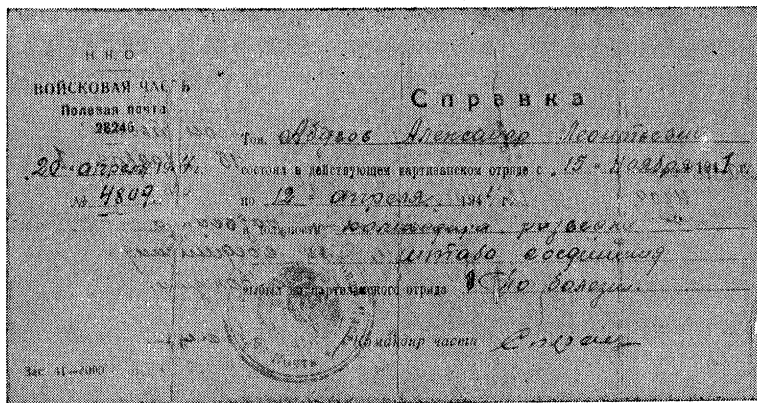 Н. К. О.
ВОЙСКОВАЯ ЧАСТЬ
Полевая почта
28246
20 апреля 1944 г.
№ 4809
Справка
Тов. Александр Леонтьевич
состоял в действующем партизанском отряде с 15 ноября 194 г.
по 12 апреля 1944 г.
в должности разведки
штаба соединения
выбыл из партизанского отряда по болезни.
Командир части
Зак. 41—2000